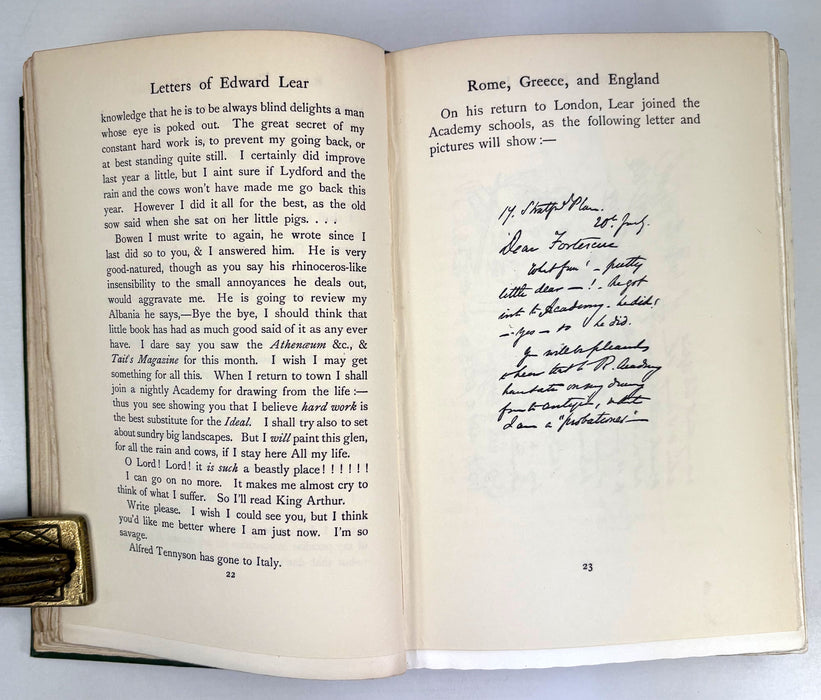 Letters of Edward Lear
knowledge that he is to be always blind delights a man
whose eye is poked out. The great secret of my
constant hard work is, to prevent my going back, or
at best standing quite still. I certainly did improve
last year a little, but I aint sure if Lydford and the
rain and the cows won't have made me go back this
year. However I did it all for the best, as the old
sow said when she sat on her little pigs. . . .
Bowen I must write to again, he wrote since I
last did so to you, & I answered him. He is very
good-natured, though as you say his rhinoceros-like
insensibility to the small annoyances he deals out,
would aggravate me. He is going to review my
Albania he says,—Bye the bye, I should think that
little book has had as much good said of it as any ever
have. I dare say you saw the Athenæum &c., &
Tait's Magazine for this month. I wish I may get
something for all this. When I return to town I shall
join a nightly Academy for drawing from the life :—
thus you see showing you that I believe hard work is
the best substitute for the Ideal. I shall try also to set
about sundry big landscapes. But I will paint this glen,
for all the rain and cows, if I stay here All my life.
O Lord! Lord! it is such a beastly place! ! ! ! ! !
I can go on no more. It makes me almost cry to
think of what I suffer. So I'll read King Arthur.
Write please. I wish I could see you, but I think
you'd like me better where I am just now. I'm so
savage.
Alfred Tennyson has gone to Italy.
22
Rome, Greece, and England
On his return to London, Lear joined the
Academy schools, as the following letter and
pictures will show :—
17. Stratford Place.
20th
Dear Fortescue
What fun! – pretty
little dear —! – he got
into the Academy – he did!
— Yes — so he did.
You will be pleased
to hear that the R. Academy
have sate on my drawing
from the antique,
I am a "probationer"—
23